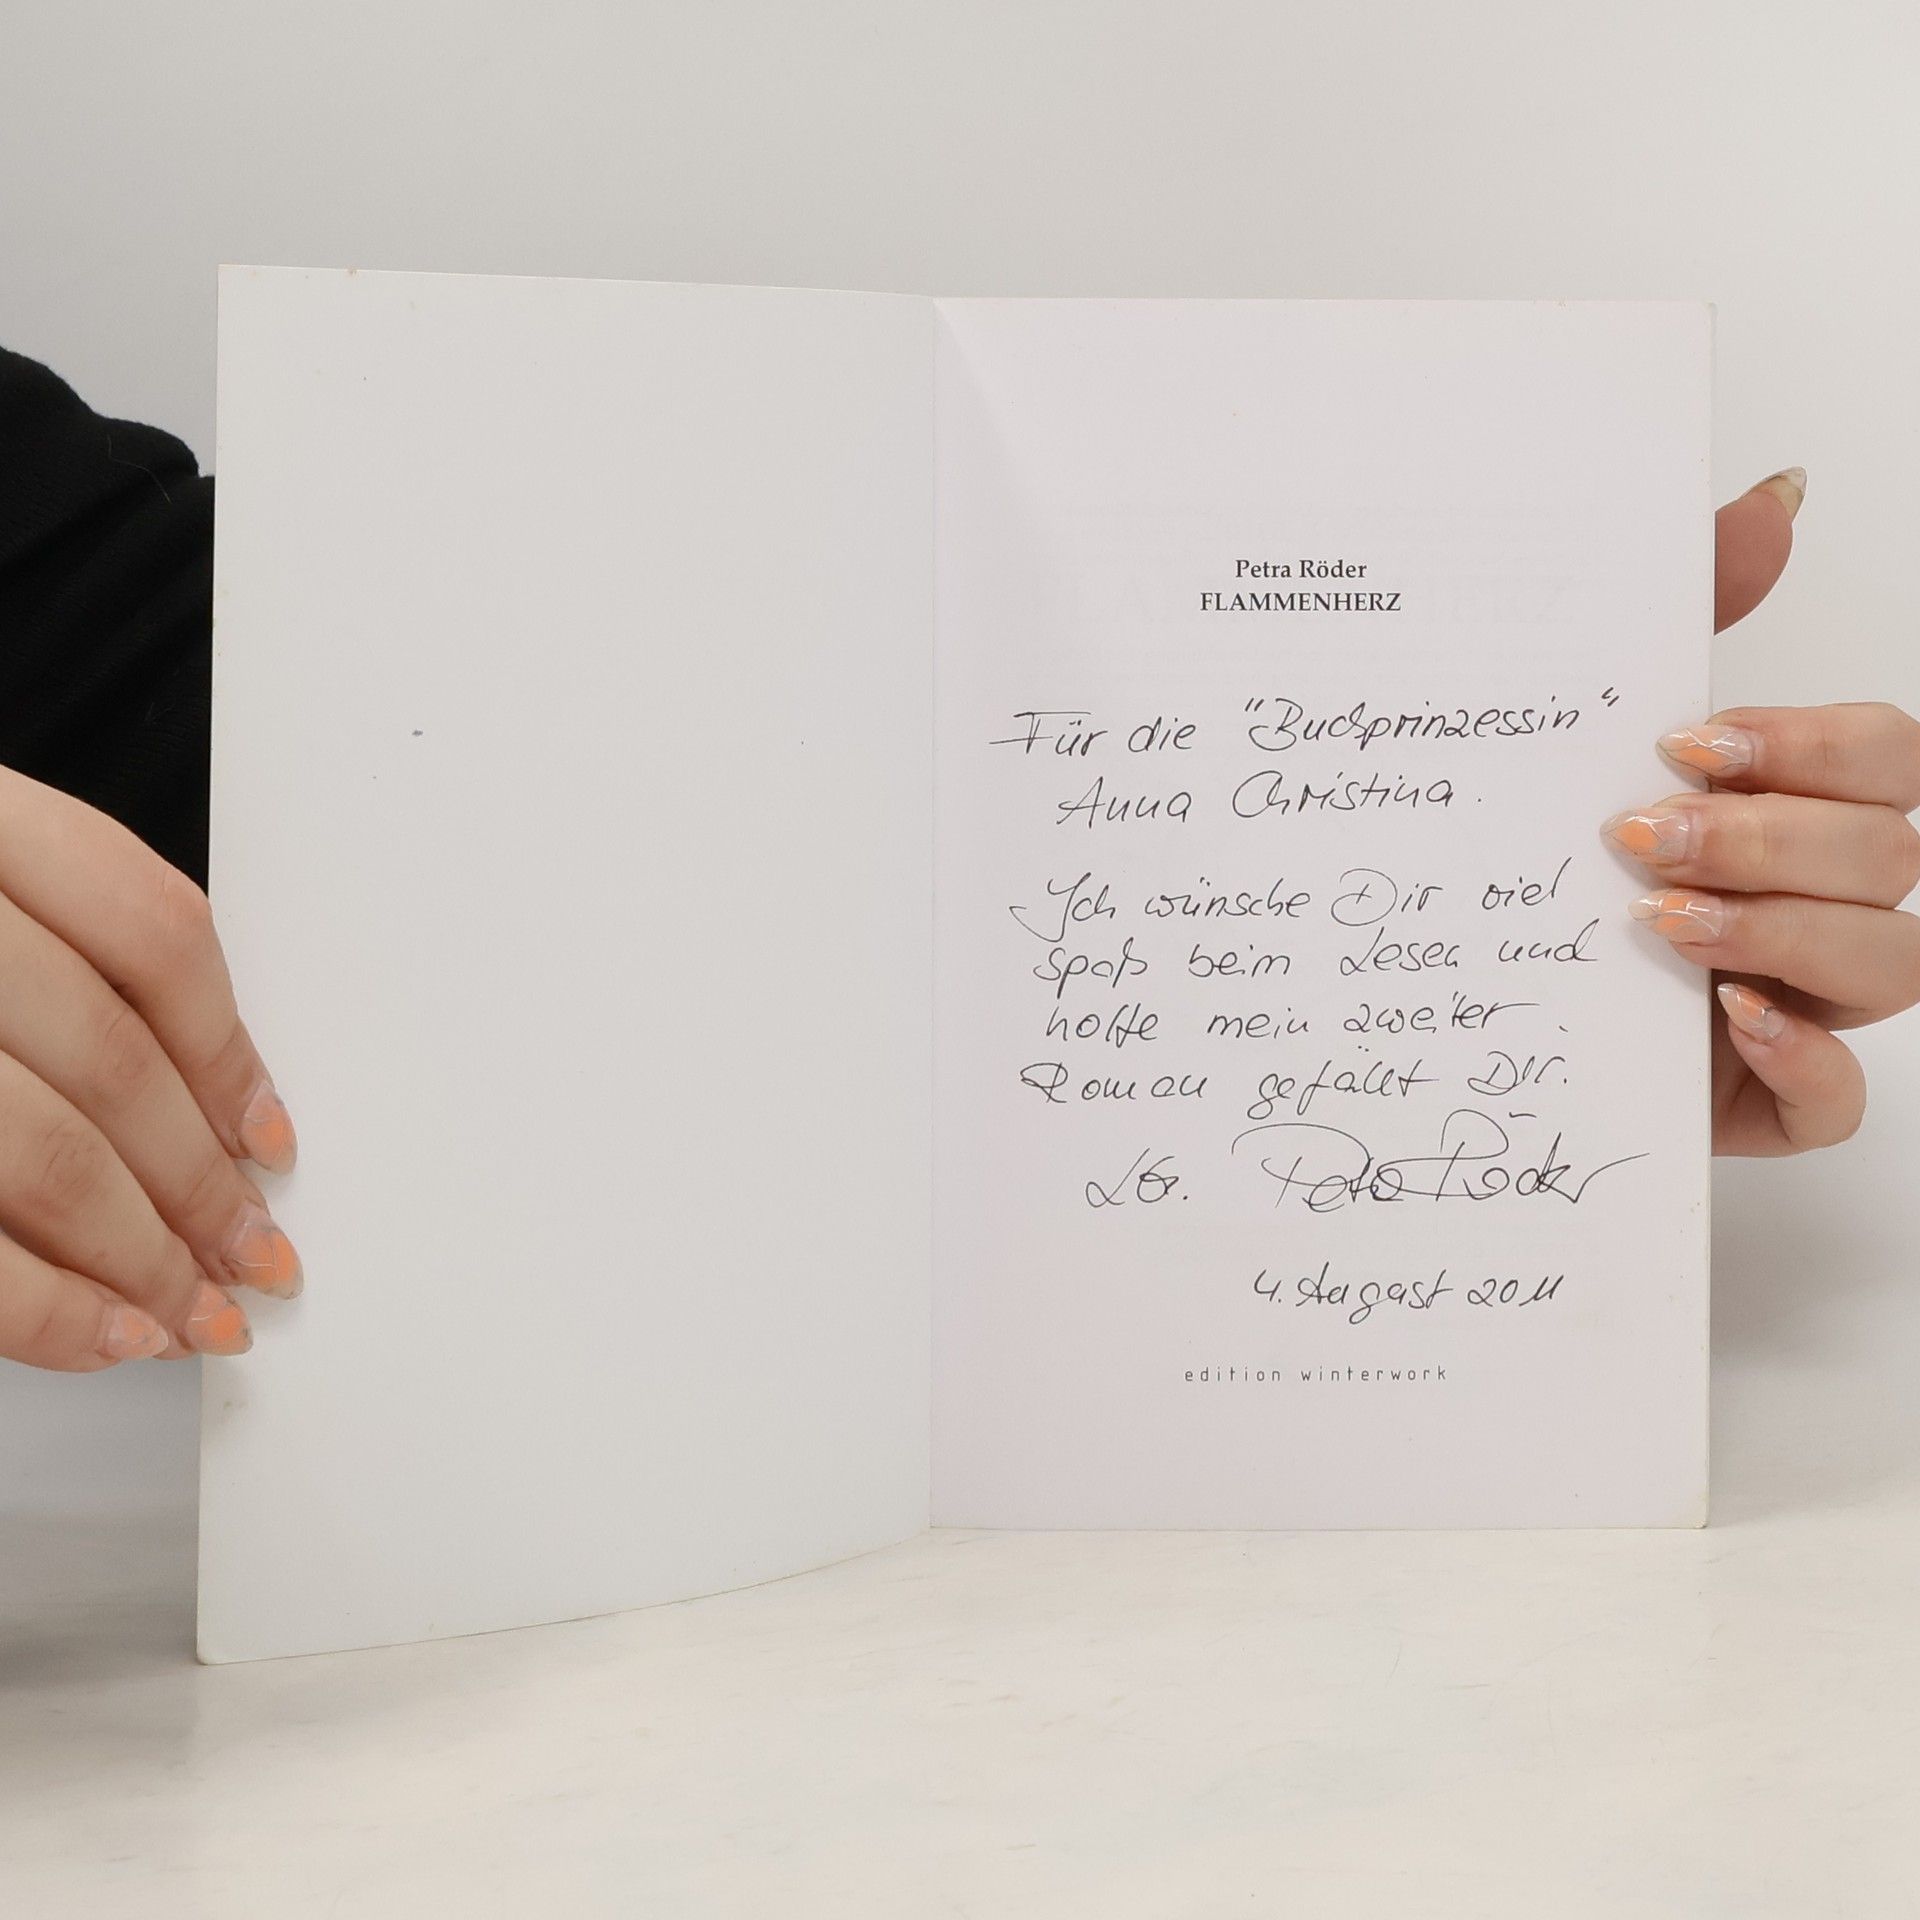 Petra Röder
FLAMMENHERZ
Für die "Buchprinzessin"
Anna Christina.
Ich wünsche Dir viel
spaß beim Lesen und
hoffe mein zweiter
Roman gefällt Dir.
LG. Petra Röder
4. August 2011
edition winterwork